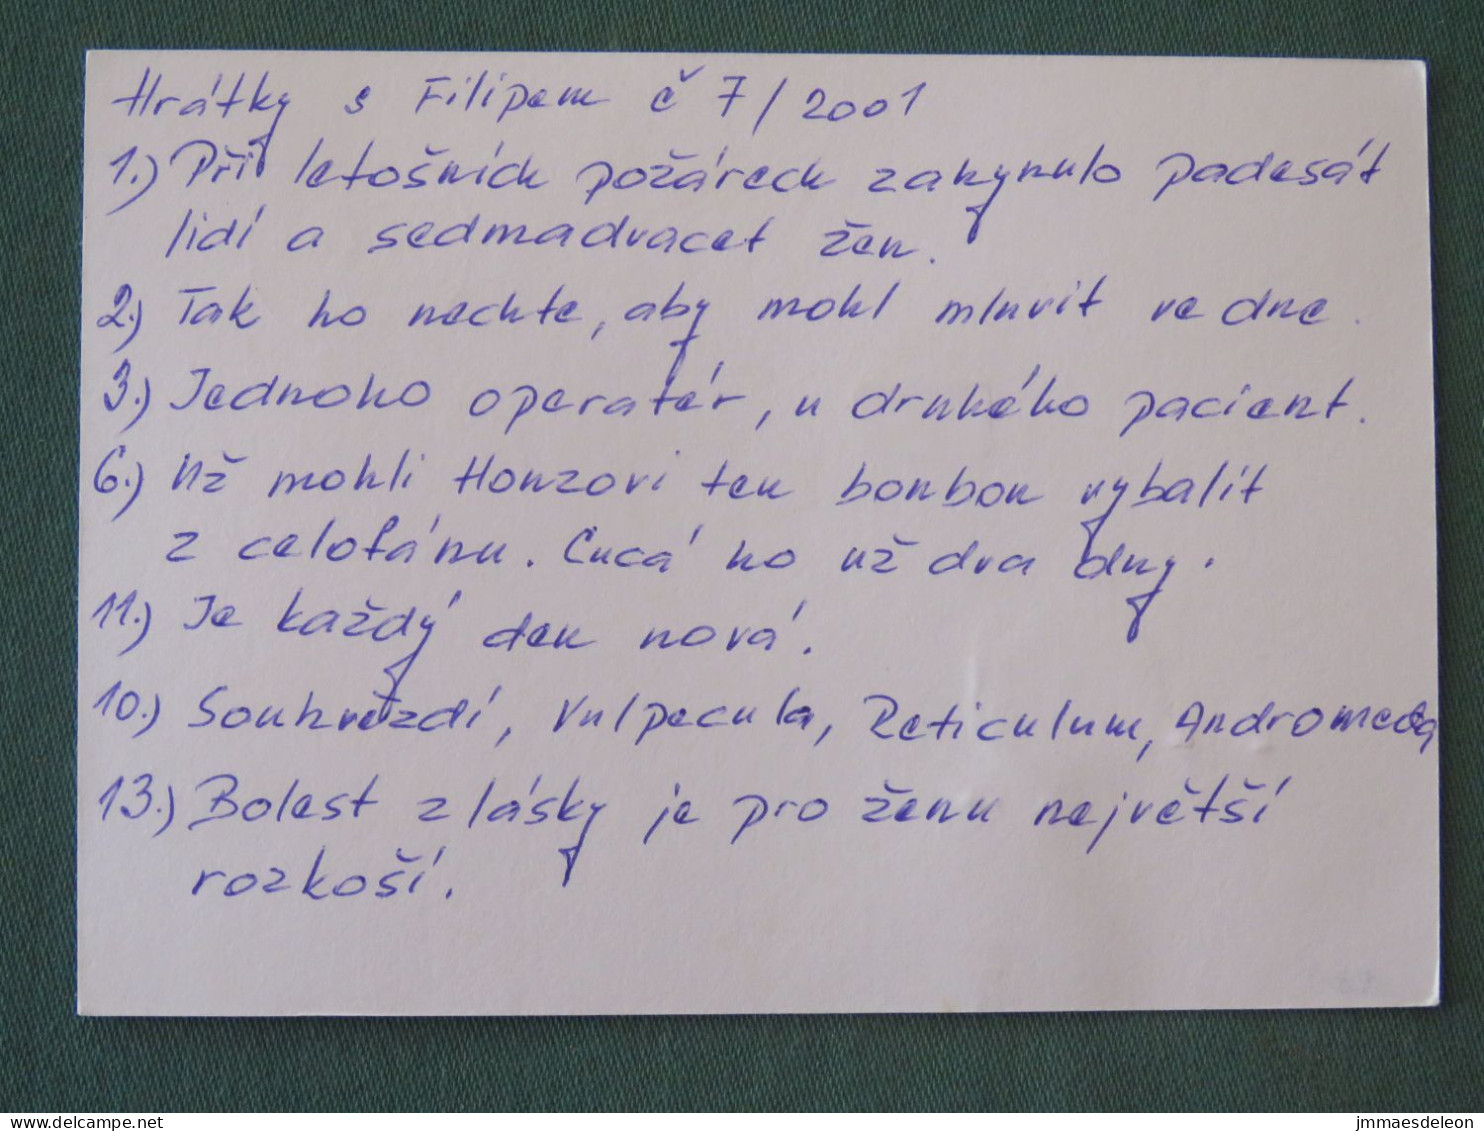 Hrátky s Filipem č 7/2001
1.) Při letošních požárech zahynulo padesát
lidí a sedmadvacet žen.
2.) Tak ho nechte, aby mohl mluvit ve dne.
3.) Jednoho operatér, u druhého pacient.
6.) Už mohli Honzovi ten bonbon vybalit
z celofánu. Cucá ho už dva dny.
11.) Je každý den nová.
10.) Souhvězdí, Vulpecula, Reticulum, Andromeda
13.) Bolest z lásky je pro ženu největší
rozkoší.
delcampe.net
jmmaesdeleon